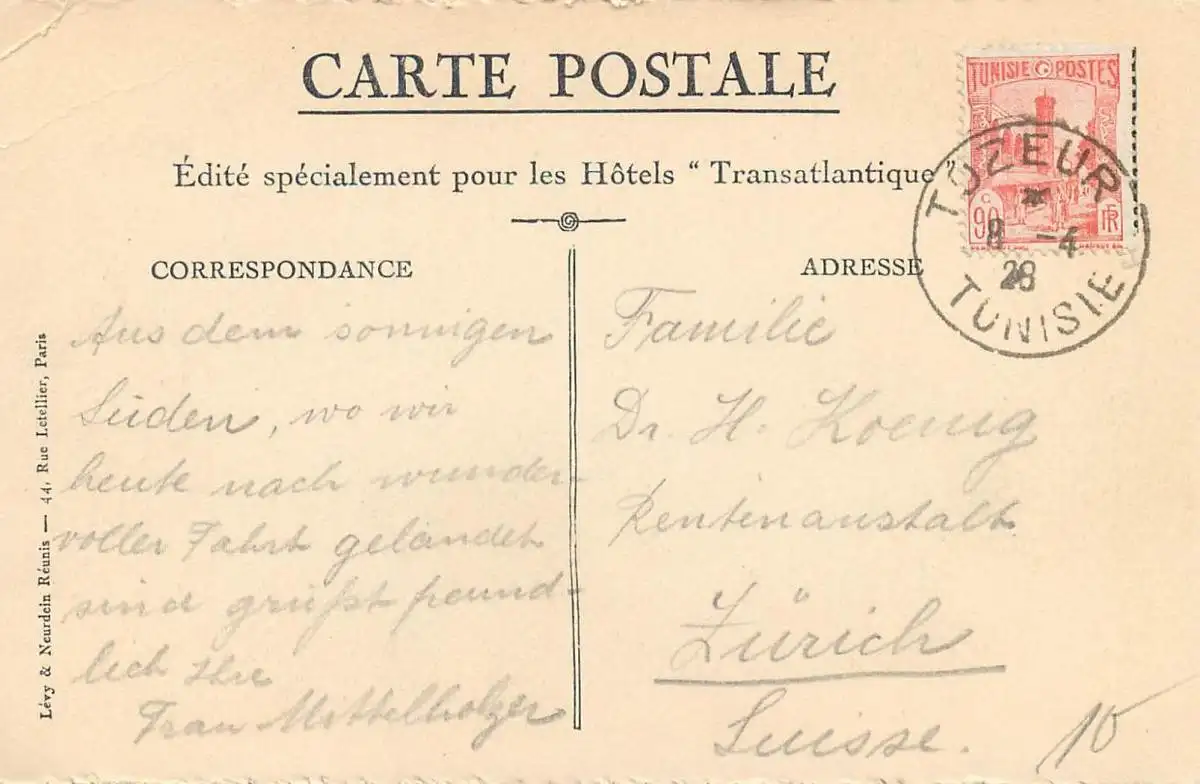 CARTE POSTALE
Édité spécialement pour les Hôtels “ Transatlantique ”
TUNISIE POSTES
90 c
RF
TOZEUR
8 -4
28
TUNISIE
CORRESPONDANCE
Aus dem sonnigen
Süden, wo wir
heute nach wunder-
voller Fahrt gelandet
sind grüßt freund-
lich Ihre
Frau Mittelholzer
ADRESSE
Familie
Dr. H. Koenig
Rentenanstalt
Zürich
Suisse.
10
Lévy & Neurdein Réunis — 44, Rue Letellier, Paris